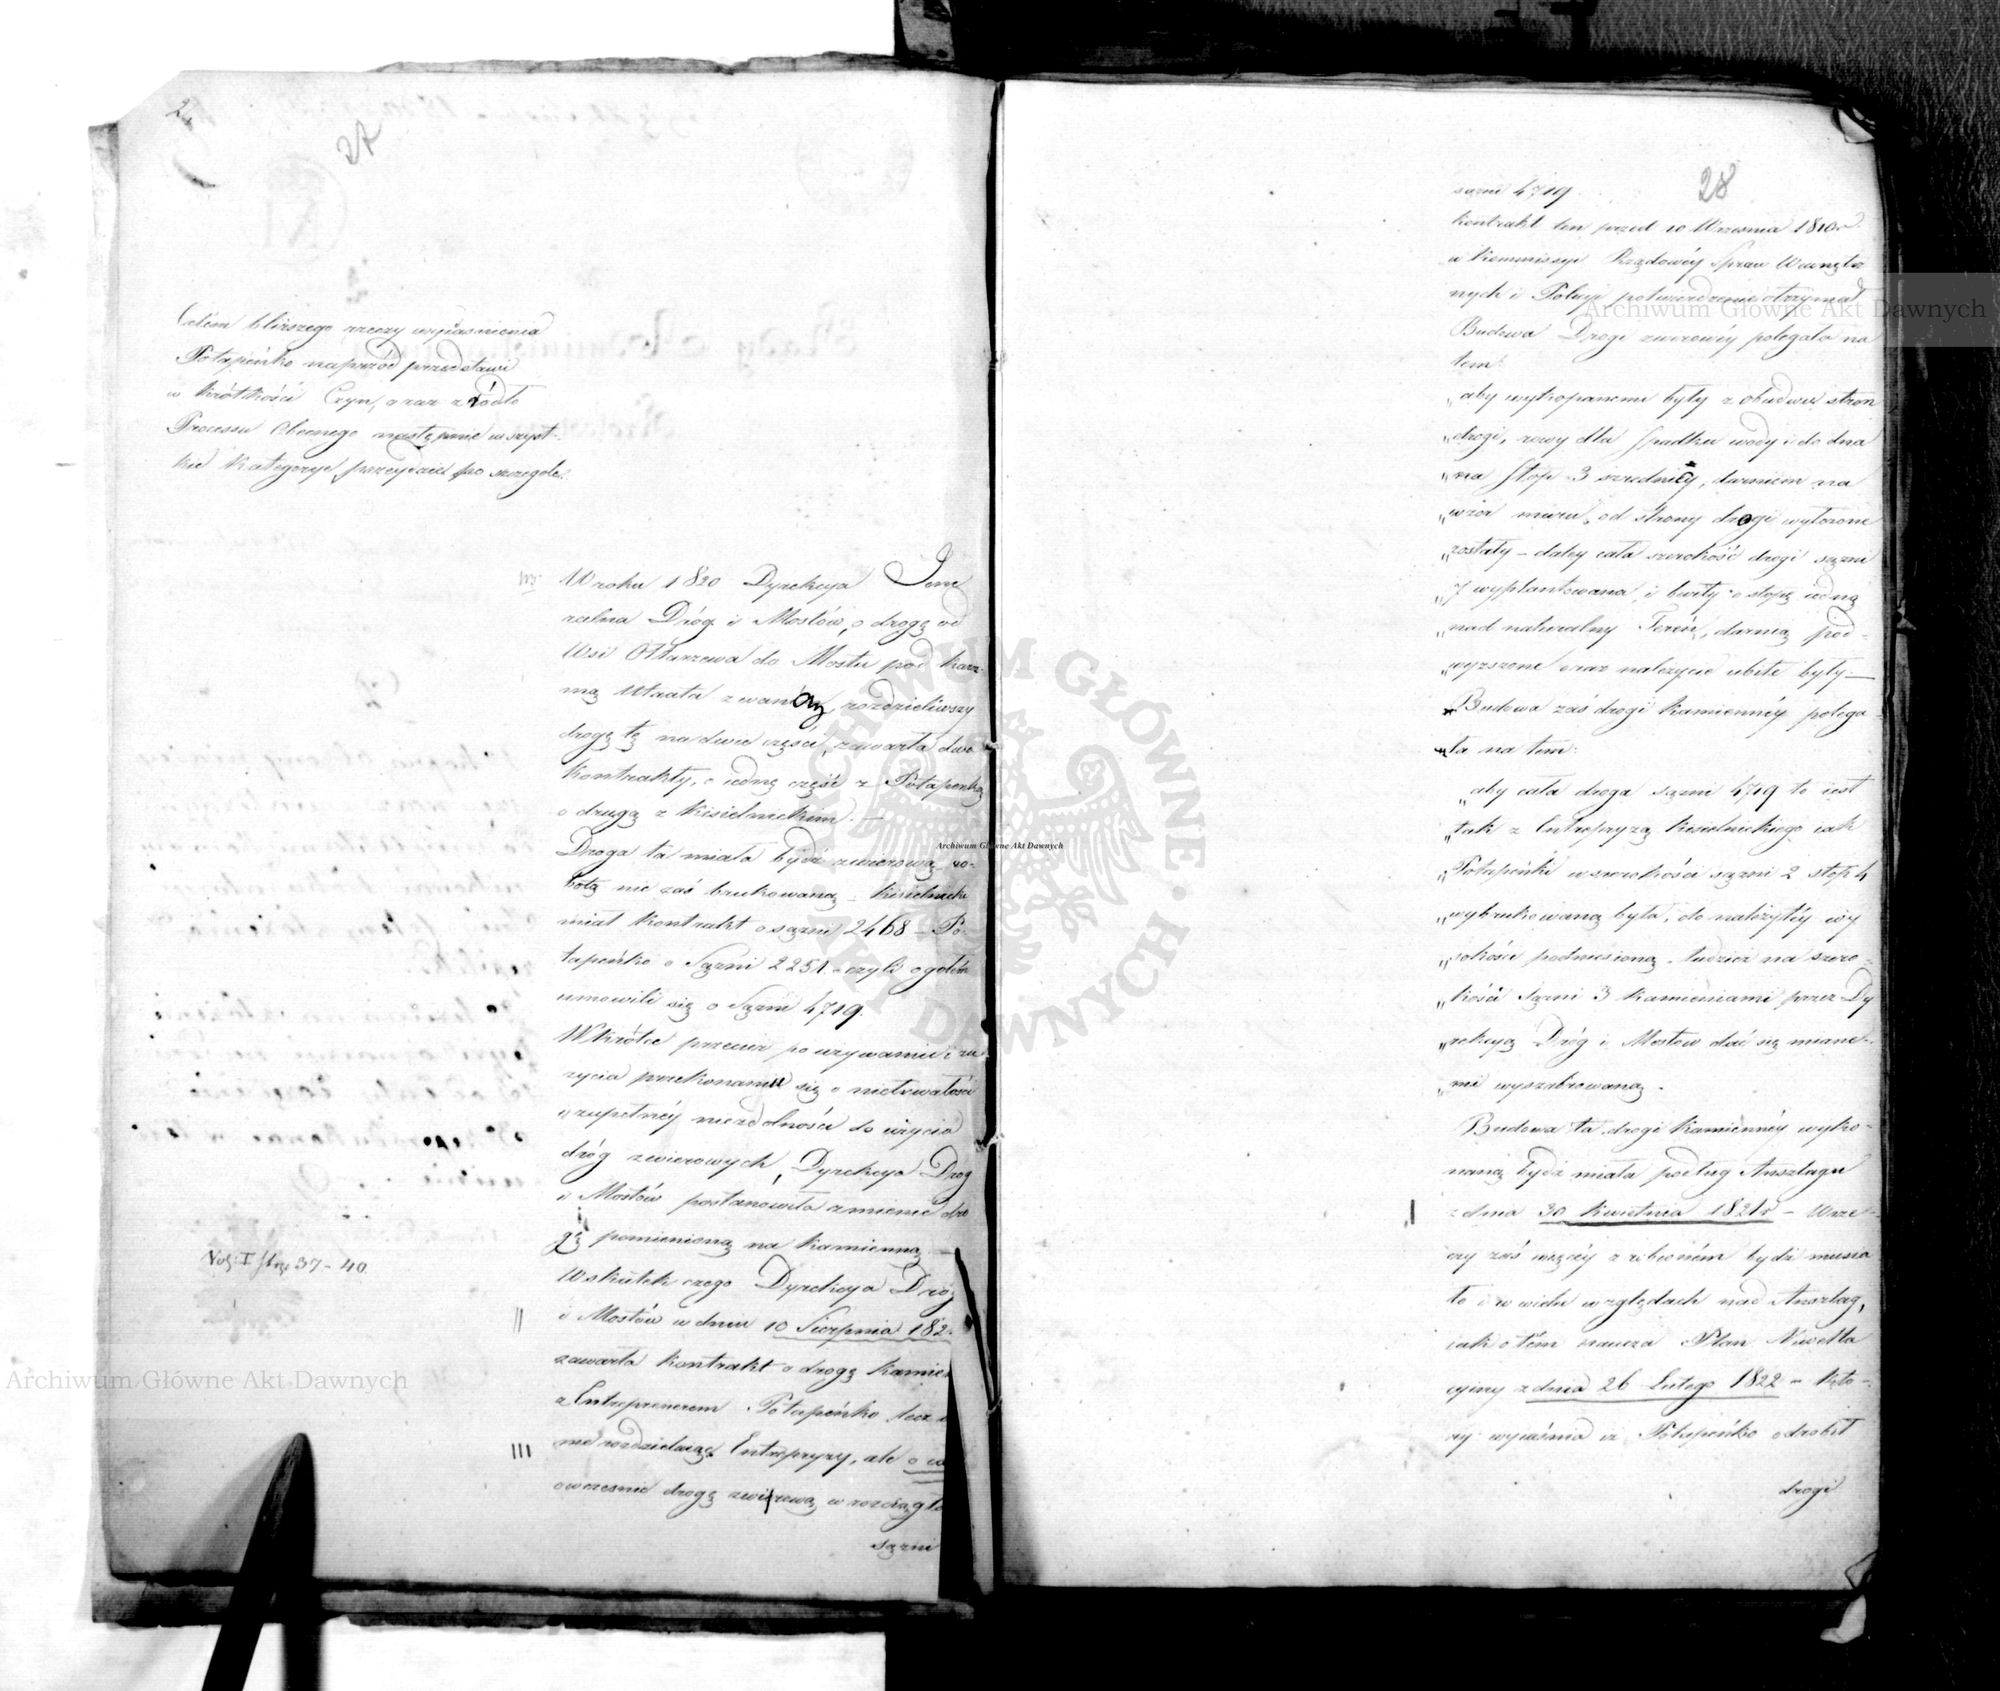 27
Celem bliższego rzeczy wyjaśnienia
Potapeńko naprzód przedstawi
w krótkości Czyn, oraz źródło
Processu Obecnego następnie wszyst-
kie kategorye przeydzie po szczegole.
W roku 1820 Dyrekcya Jene
ralna Dróg i Mostów, o drogę od
Wsi Ołtarzewa do Mostu pod karcz-
mą Utrata zwaney, rozdzieliwszy
drogę tę na dwie części, zawarła dwa
Kontrakty, o iedną część z Potapeńką
o drugą z Kisielnickim. —
Droga ta miała bydź zwierową ro-
botą nie zaś brukowaną – Kisielnicki
miał kontrakt o sążni 2468 – Po-
tapeńko o Sążni 2251 – czyli ogółem
umówili się o Sążni 4719.
Wkrótce przecież po używaniu i zu
życia przekonaniu się o nietrwałości
i zupełnéy niezdolności do użycia
dróg zwierowych, Dyrekcya Dróg
i Mostów postanowiła zmienić dro
gę pomienioną na kamienną —
Wskutek czego Dyrekcya Dróg
i Mostów w dniu 10 Sierpnia 182
zawarła kontrakt o drogę kamien
z Entreprenerem Potapeńko lecz
nie rozdzielając Entrepryzy, ale o
owczesnie drogę zwirową w rozciągło
sążni
Vol: I str 37 – 40.
28
sążni 4719.
Kontrakt ten przed 10 Września 1810 r.
w Kommissyi Rządowéy Spraw Wewnętrz
nych i Policyi potwierdzenie otrzymał
Budowa Drogi zwirowéy polegała na
tem:
„aby wykopanemi były z obudwu stron
„drogi, rowy dla spadku wody i do dna
„na stop 3 szrednicy, darniem na
„wzór muru, od strony drogi wyłożone
„zostały – daley cała szerokość drogi sążni
„7 wyplantowana i była o stopę iedną
„nad naturalny Teren, darnią pod-
„wyższone oraz należycie ubite były —
Budowa zaś drogi Kamiennéy polega-
ła na tem:
„aby cała droga sążni 4719 to iest
„tak z Entrepryzą Kisielnickiego iak
„Potapeńki w szerokości sążni 2 stop 4
„wybrukowaną była, do należytéy wy
„sokości podniesioną – tudzież na szero-
„kości Sążni 3 kamieniami przez Dy
„rekcyą Dróg i Mostów dać się miane-
„mi wyszabrowaną.
Budowa ta drogi Kamiennéy wyko-
naną bydź miała podług Anszlagu
z dnia 30 Kwietnia 1821 r – W rze-
czy zaś więcéy zrobioném bydź musia
ło i w wielu względach nad Anszlag,
iak o tém naucza Plan Niwella
cyiny z dnia 26 Lutego 1822 – któ-
ry wyiaśnia iż Potapeńko odrobił
drogi
Archiwum Główne Akt Dawnych
Archiwum Główne Akt Dawnych
Archiwum Główne Akt Dawnych
ARCHIWUM GŁÓWNE AKT DAWNYCH